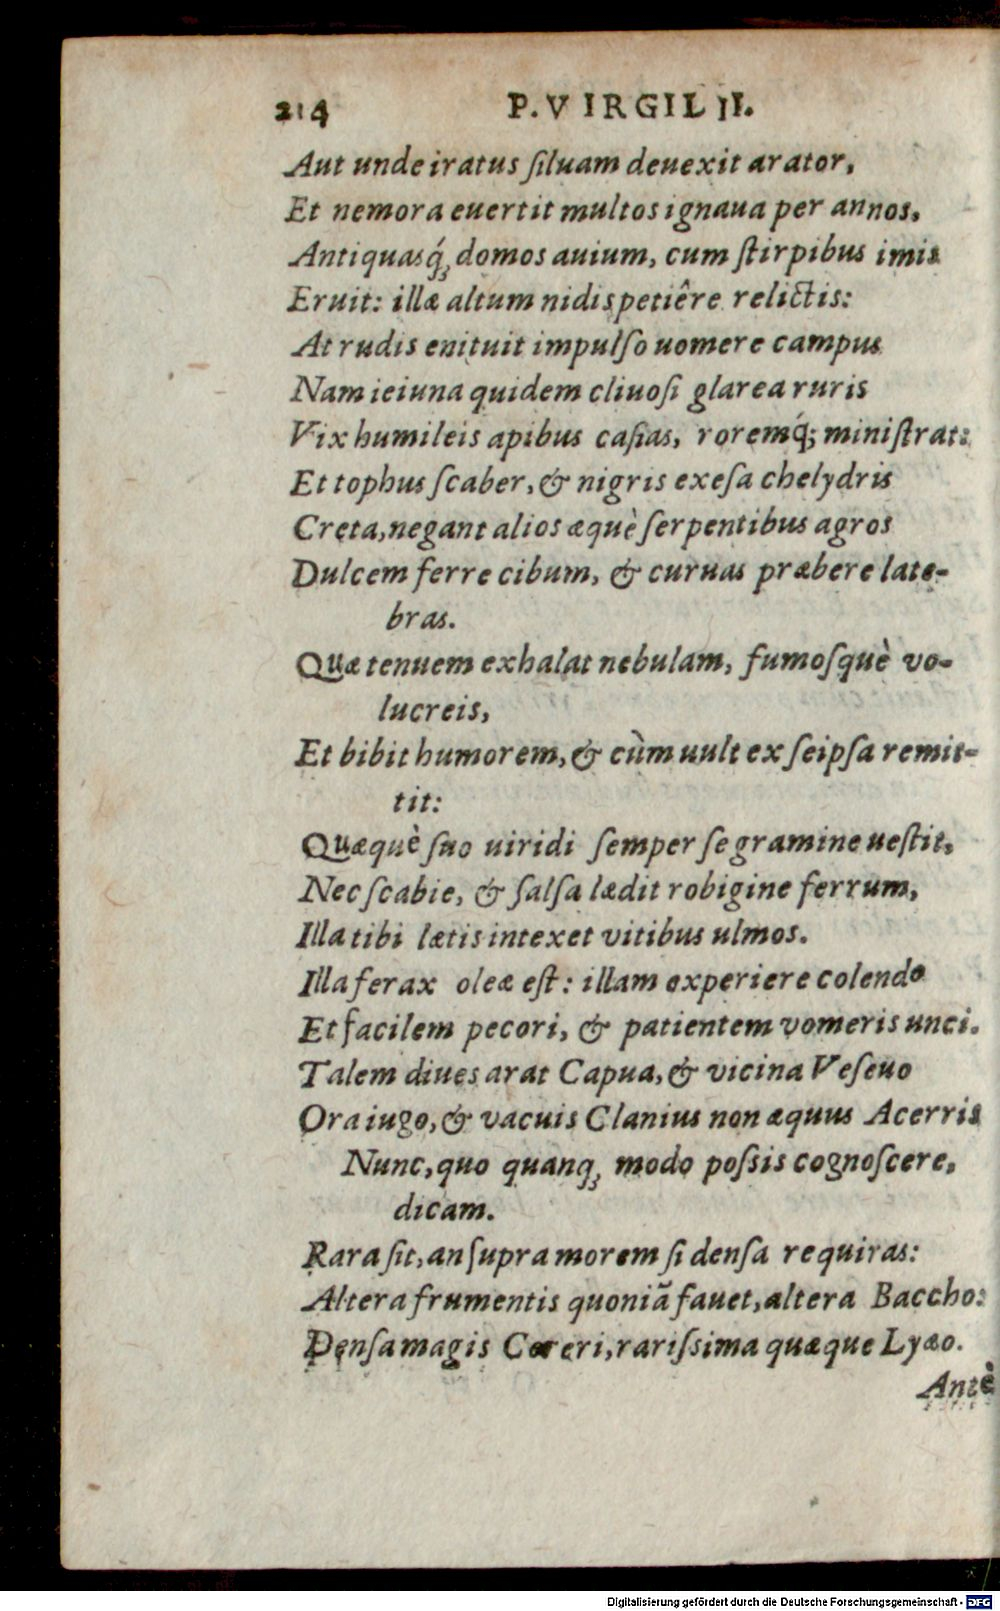 214 P. VIRGILII.
Aut unde iratus ſiluam deuexit arator,
Et nemora euertit multos ignaua per annos,
Antiquasq́ꝫ domos auium, cum ſtirpibus imis
Eruit: illæ altum nidis petiêre relictis:
At rudis enituit impulſo uomere campus
Nam ieiuna quidem cliuoſi glarea ruris
Vix humileis apibus caſias, roremq́ꝫ miniſtrat:
Et tophus ſcaber, & nigris exeſa chelydris
Creta, negant alios æquè ſerpentibus agros
Dulcem ferre cibum, & curuas præbere late-
bras.
Quæ tenuem exhalat nebulam, fumoſquè vo-
lucreis,
Et bibit humorem, & cùm uult ex ſeipſa remit-
tit:
Quæquè ſuo uiridi ſemper ſe gramine ueſtit,
Nec ſcabie, & ſalſa lædit robigine ferrum,
Illa tibi lætis intexet vitibus ulmos.
Illa ferax oleæ eſt: illam experiere colendo
Et facilem pecori, & patientem vomeris unci.
Talem diues arat Capua, & vicina Veſeuo
Ora iugo, & vacuis Clanius non æquus Acerris
Nunc, quo quanqꝫ modo poſsis cognoſcere,
dicam.
Rara ſit, an ſupra morem ſi denſa requiras:
Altera frumentis quoniã fauet, altera Baccho:
Denſa magis Cereri, rariſsima quæque Lyæo.
Antè
Digitalisierung gefördert durch die Deutsche Forschungsgemeinschaft - DFG